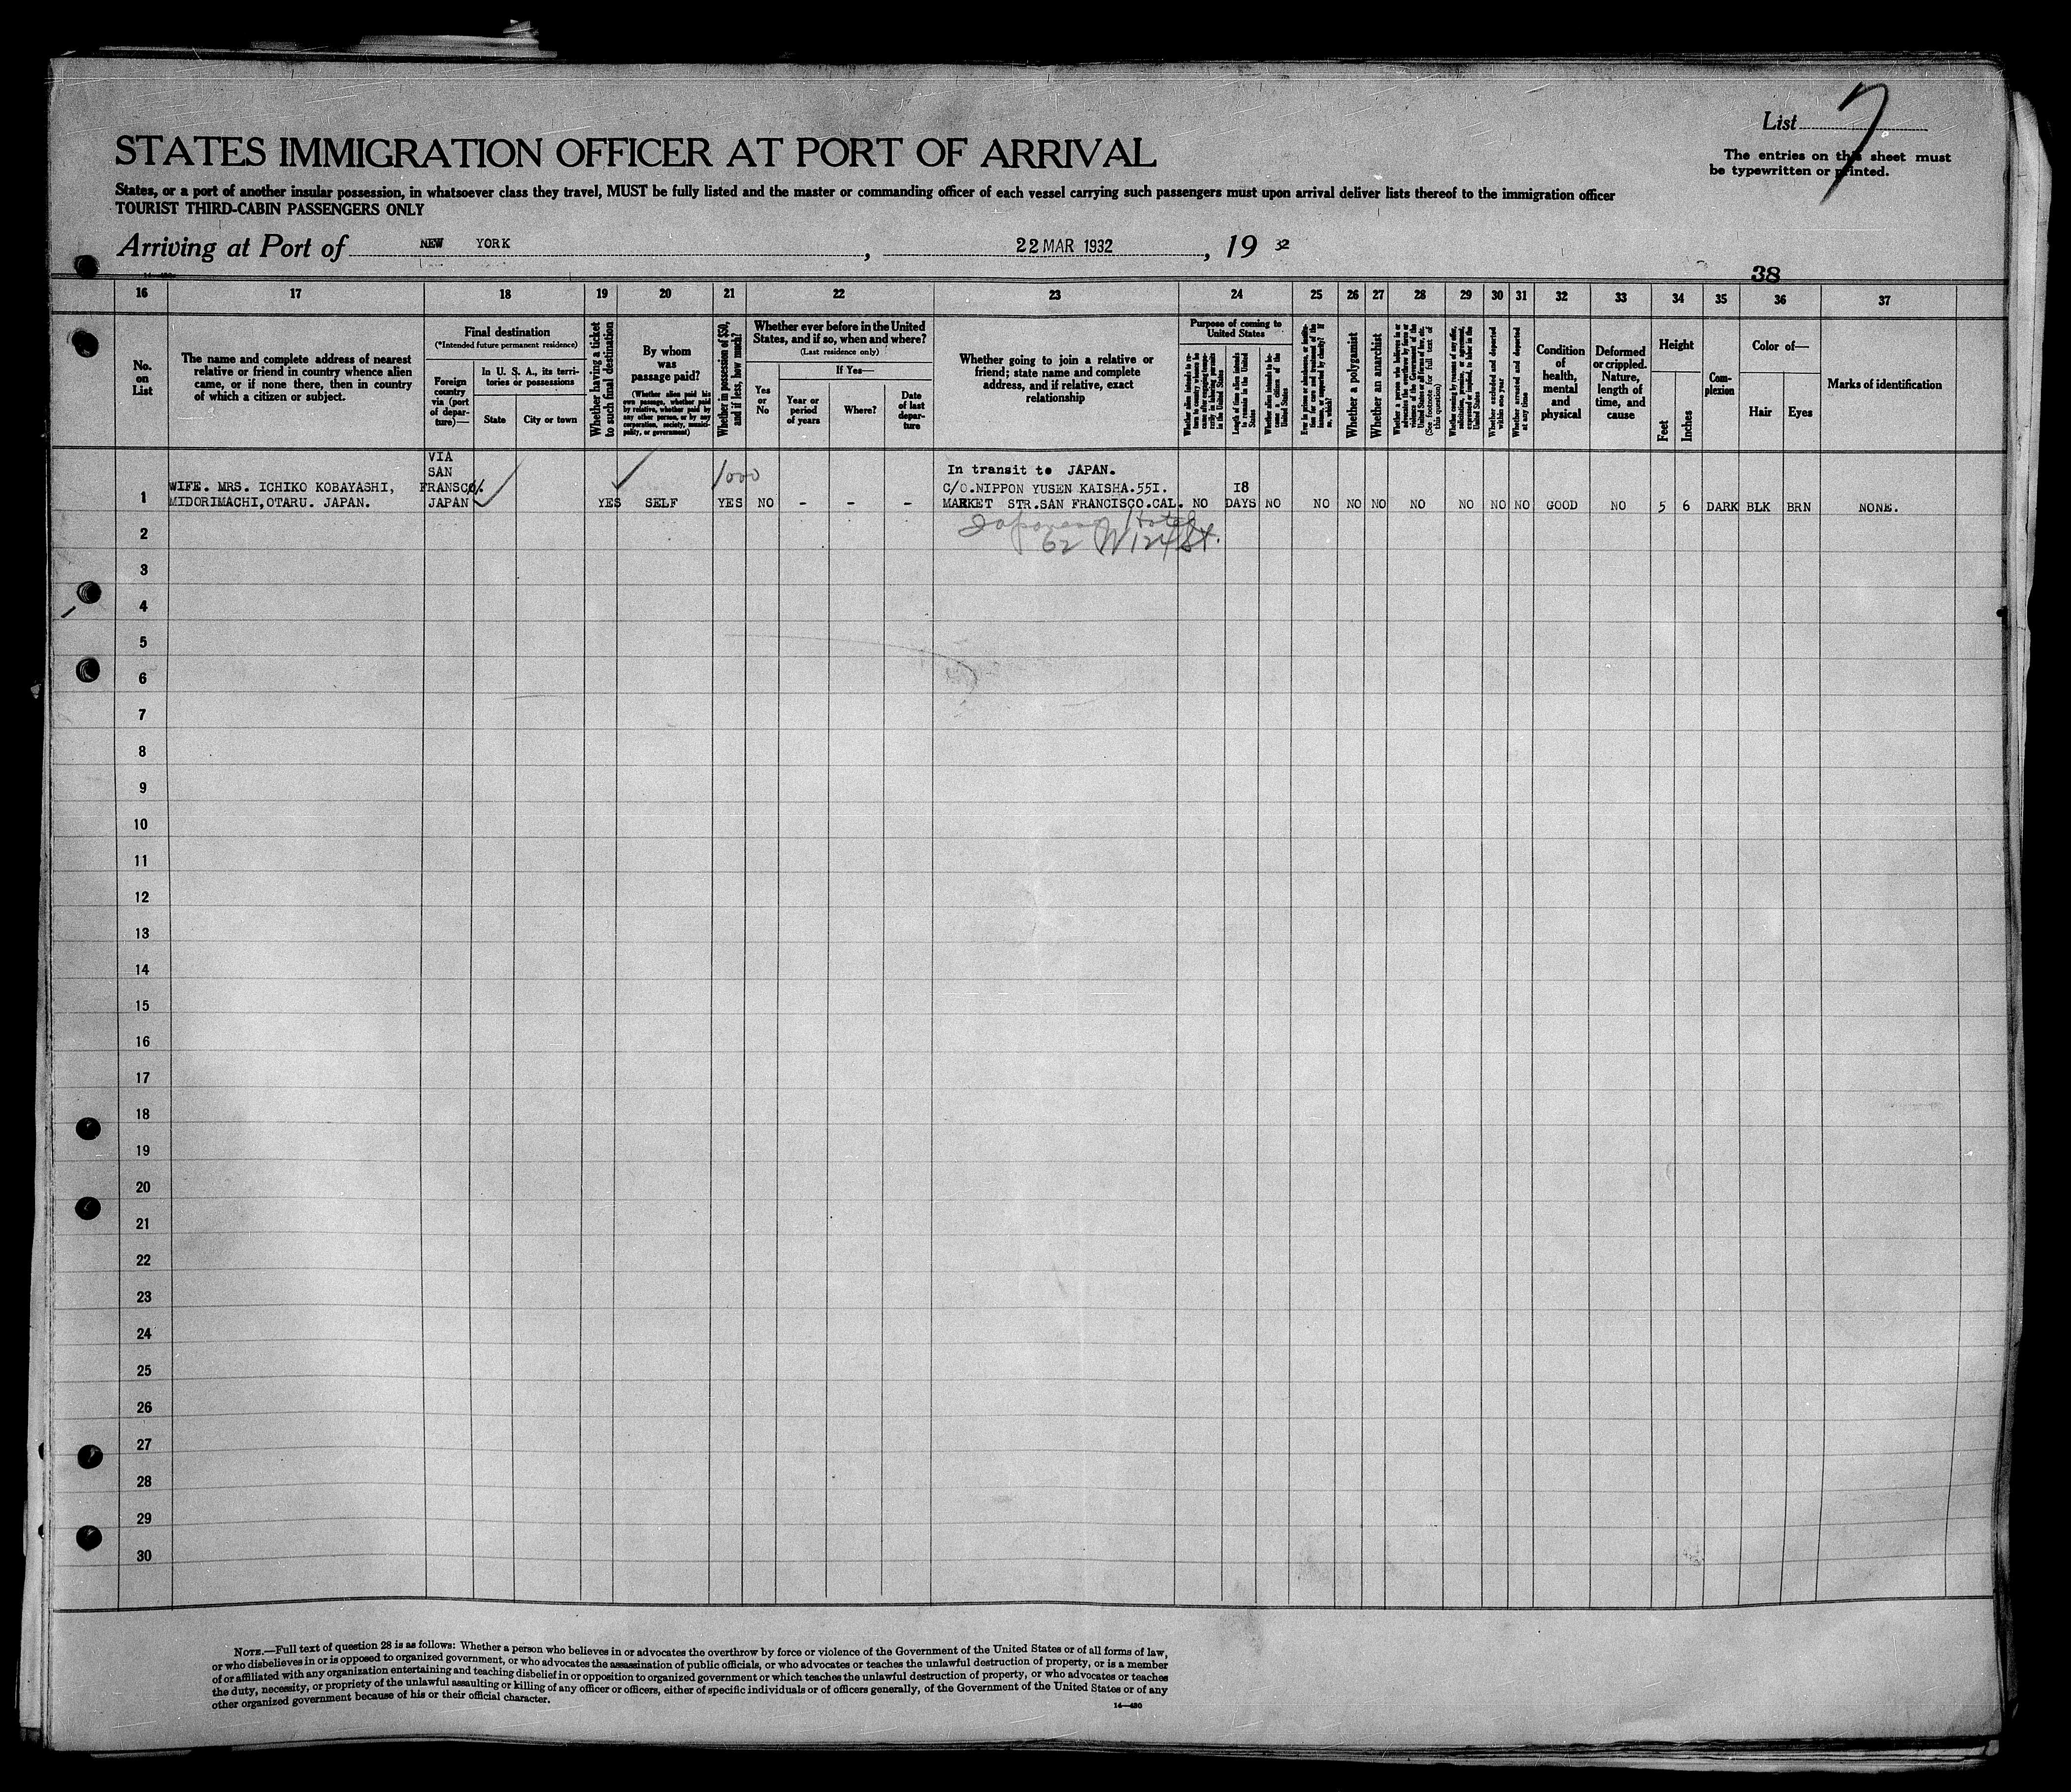 List 7
STATES IMMIGRATION OFFICER AT PORT OF ARRIVAL
The entries on this sheet must
be typewritten or printed.
States, or a port of another insular possession, in whatsoever class they travel, MUST be fully listed and the master or commanding officer of each vessel carrying such passengers must upon arrival deliver lists thereof to the immigration officer
TOURIST THIRD-CABIN PASSENGERS ONLY
Arriving at Port of NEW YORK, 22 MAR 1932, 19 32
38
16 17 18 19 20 21 22 23 24 25 26 27 28 29 30 31 32 33 34 35 36 37
No.
on
List
The name and complete address of nearest
relative or friend in country whence alien
came, or if none there, then in country
of which a citizen or subject.
Final destination
(*Intended future permanent residence)
Foreign
country
via (port
of depar-
ture)—
In U. S. A., its terri-
tories or possessions
State
City or town
Whether having a ticket
to such final destination
By whom
was
passage paid?
(Whether alien paid his
own passage, whether paid
by relative, whether paid by
any other person, or by any
corporation, society, munici-
pality, or government)
Whether in possession of $50,
and if less, how much?
Whether ever before in the United
States, and if so, when and where?
(Last residence only)
Yes
or
No
If Yes—
Year or
period
of years
Where?
Date
of last
depar-
ture
Whether going to join a relative or
friend; state name and complete
address, and if relative, exact
relationship
Purpose of coming to
United States
Length of time alien intends
to remain in the United
States
Whether alien intends to be-
come a citizen of the
United States
Whether a polygamist
Whether an anarchist
(See footnote for full text of
this question)
Whether excluded and deported
within one year
Whether arrested and deported
at any time
Condition
of
health,
mental
and
physical
Deformed
or crippled.
Nature,
length of
time, and
cause
Height
Feet
Inches
Com-
plexion
Color of—
Hair
Eyes
Marks of identification
1
WIFE. MRS. ICHIKO KOBAYASHI,
MIDORIMACHI,OTARU. JAPAN.
VIA
SAN
FRANSCO/.
JAPAN
YES
SELF
1000
YES
NO
- - -
In transit to JAPAN.
C/O.NIPPON YUSEN KAISHA.551.
MARKET STR.SAN FRANCISCO.CAL.
NO
18
DAYS
NO
NO NO NO NO NO NO NO GOOD NO 5 6 DARK BLK BRN NONE.
Japanese Hotel
62 W 124 St.
2
3
4
5
6
7
8
9
10
11
12
13
14
15
16
17
18
19
20
21
22
23
24
25
26
27
28
29
30
NOTE.—Full text of question 28 is as follows: Whether a person who believes in or advocates the overthrow by force or violence of the Government of the United States or of all forms of law,
or who disbelieves in or is opposed to organized government, or who advocates the assassination of public officials, or who advocates or teaches the unlawful destruction of property, or is a member
of or affiliated with any organization entertaining and teaching disbelief in or opposition to organized government or which teaches the unlawful destruction of property, or who advocates or teaches
the duty, necessity, or propriety of the unlawful assaulting or killing of any officer or officers, either of specific individuals or of officers generally, of the Government of the United States or of any
other organized government because of his or their official character.
14—480